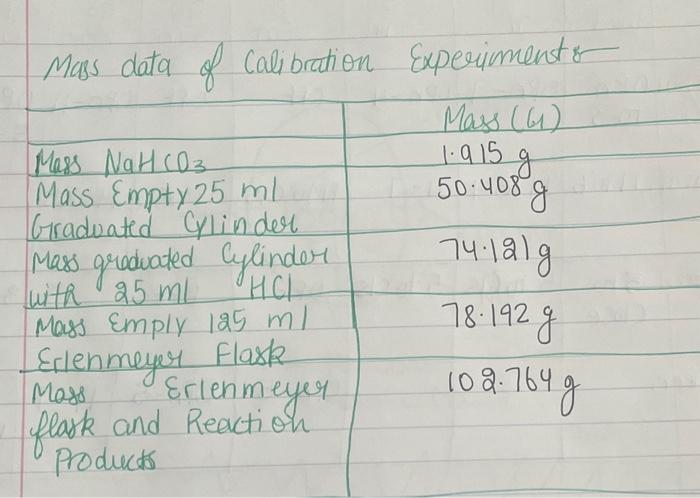 Mass data of Calibration Experiment :-
Mass (G)
Mass NaHCO3 1.915 g
Mass Empty 25 ml 50.408 g
Graduated Cylinder
Mass graduated Cylinder 74.121 g
with 25 ml HCl
Mass Emply 125 ml 78.192 g
Erlenmeyer Flask
Mass Erlenmeyer 102.764 g
flask and Reaction
Products